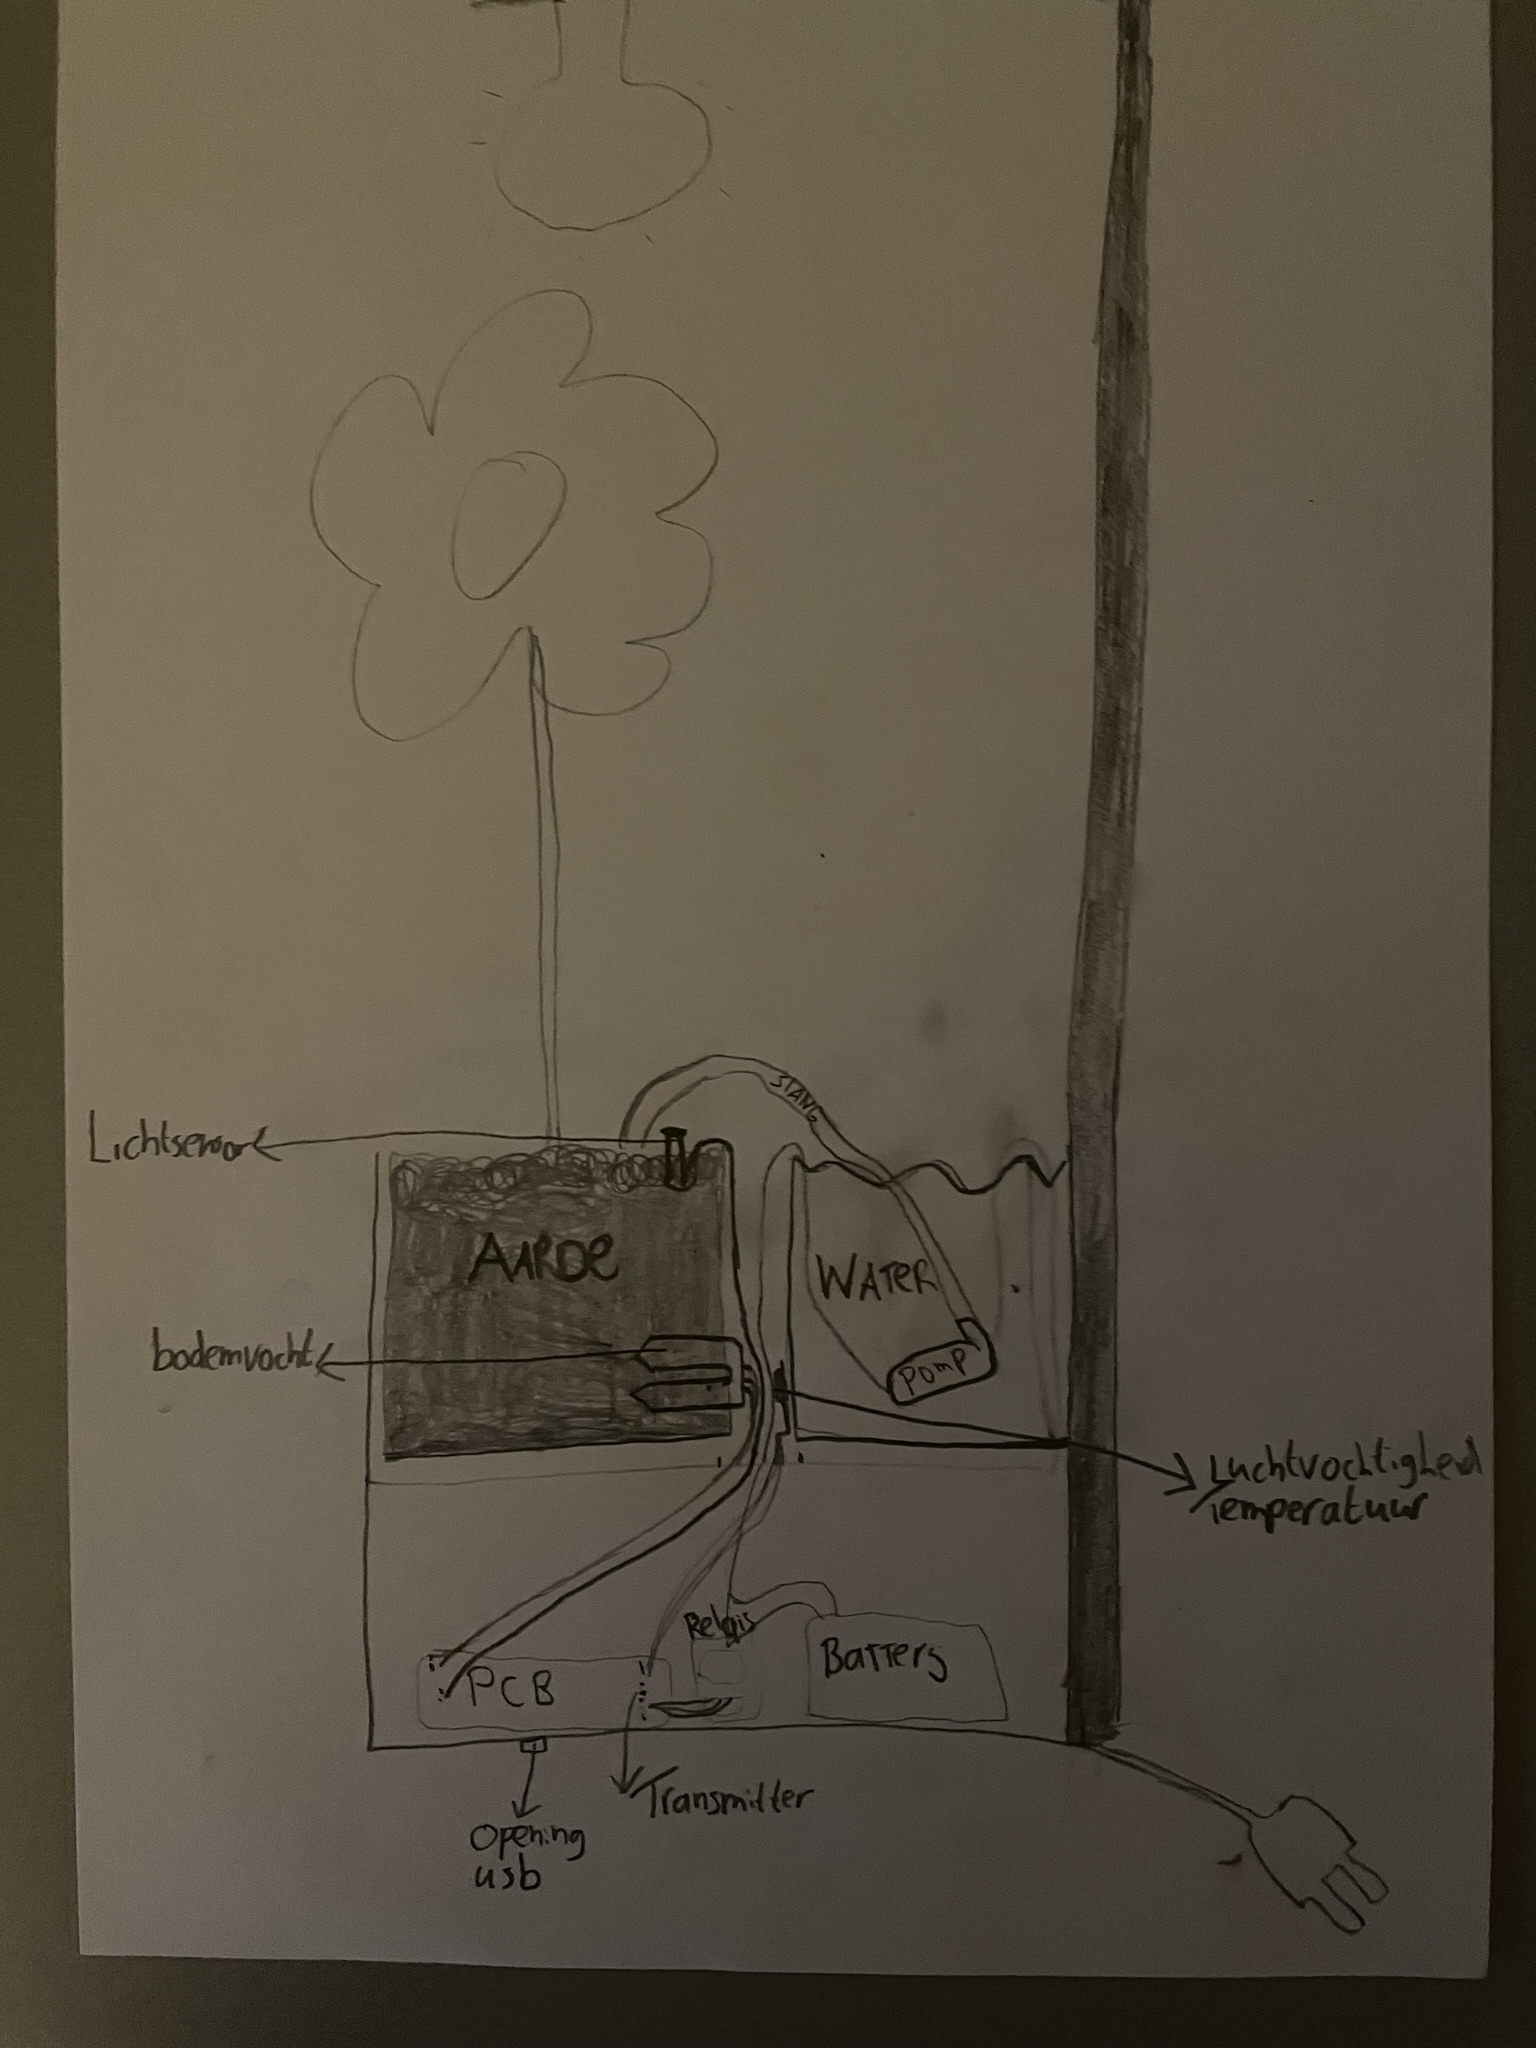 STANG
Lichtsensor
AARDE
WATER
bodemvocht
POMP
Luchtvochtigheid
Temperatuur
Relais
Battery
PCB
Transmitter
Opening
usb